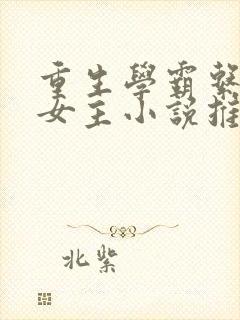 重生學霸
女主小說推
北紫